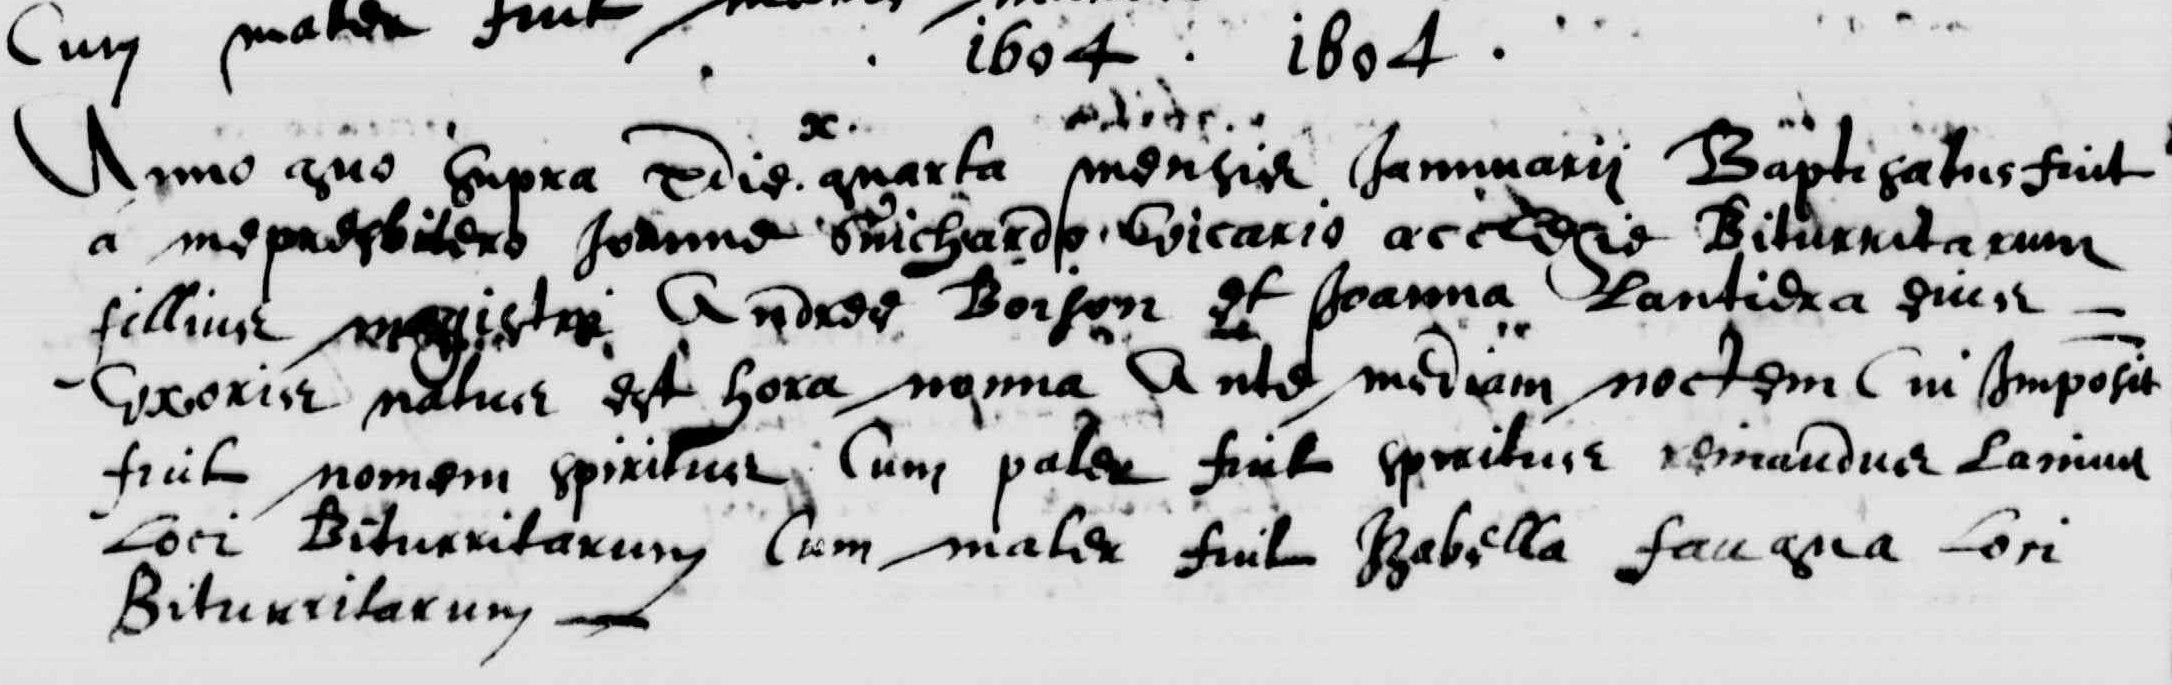 Cum mater fuit
1604 . 1604 .
Anno quo supra die x. quarta mensis Januuarij Baptisatus fuit
a me presbitero Joanne Guichardo Vicario accleсie Biturritarum
fillius magistri Andree Boison et Joanna Lantiera eius
Vxoris natus est hora nonna Ante mediam noctem Cui Imposit
fuit nomem spiritus Cum pater fuit spiritus reinaudus Lanius
Loci Biturritarum Cum mater fuit Izabella fauqua Loci
Biturritarum